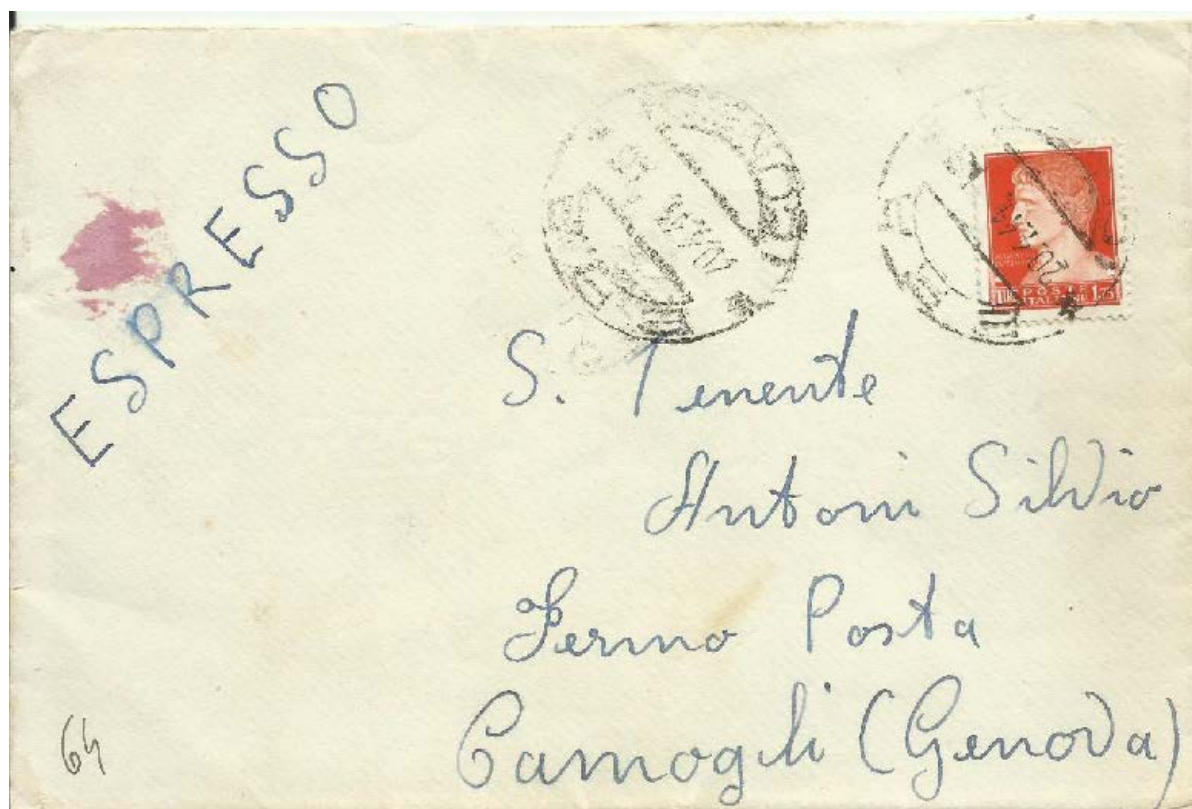 ESPRESSO
POSTE
ITALIANE 1,75
S. Tenente
Antoni Silvio
Fermo Posta
Camogli (Genova)
64